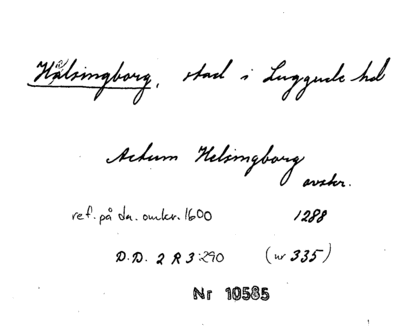 Hälsingborg, stad i Luggude hd
Actum Helsingborg
avskr.
ref. på da. omkr. 1600 1288
D.D. 2 R 3:290 (nr 335)
Nr 10585